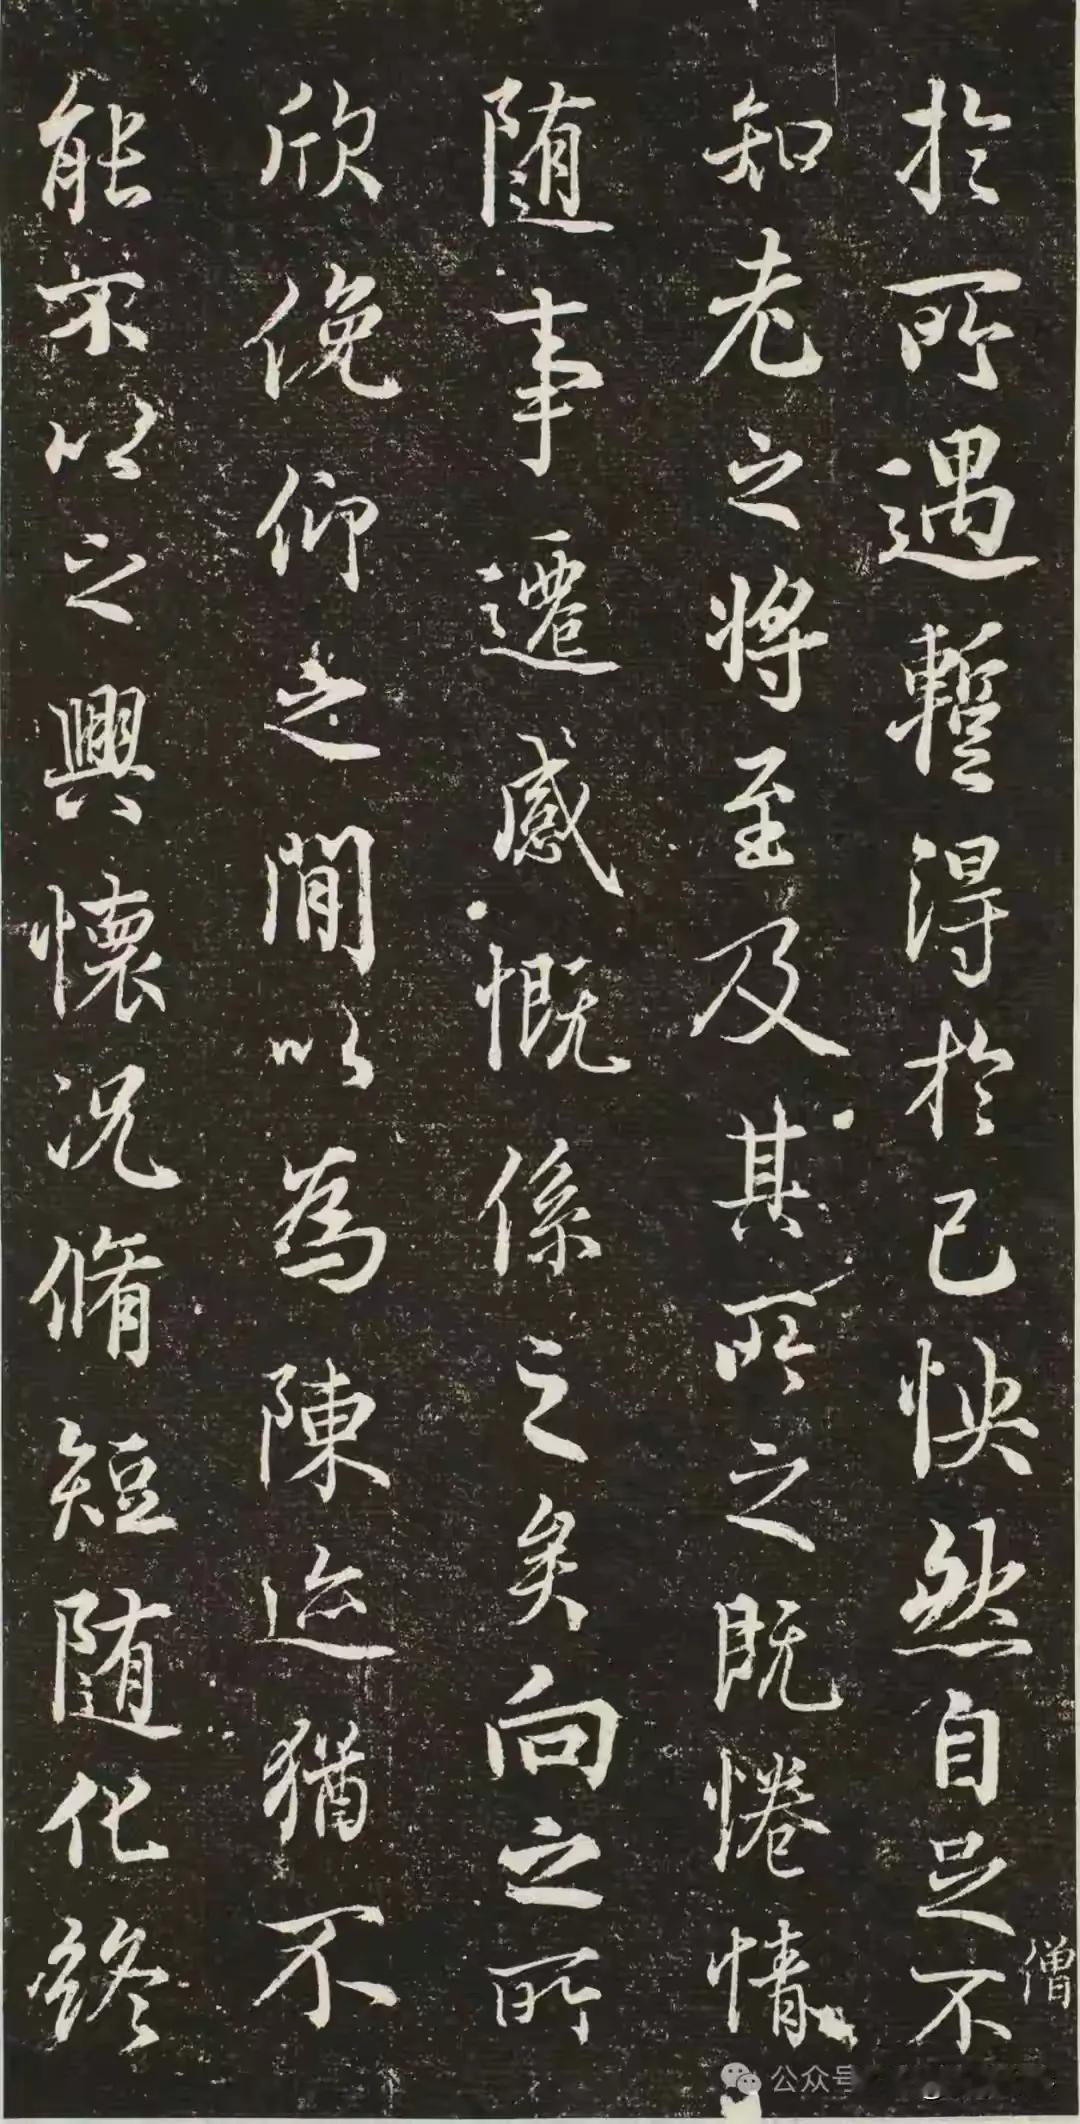 於所遇暫得於己怏然自足不
僧
知老之將至及其所之既惓情
随事遷感慨係之矣向之所
欣俛仰之間以為陳迹猶不
能不以之興懷況脩短随化終
公众号